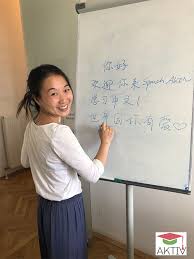 你好
欢迎你来 Sprach Aktiv
学习中文!
世界因你 爱♡
AKTIV